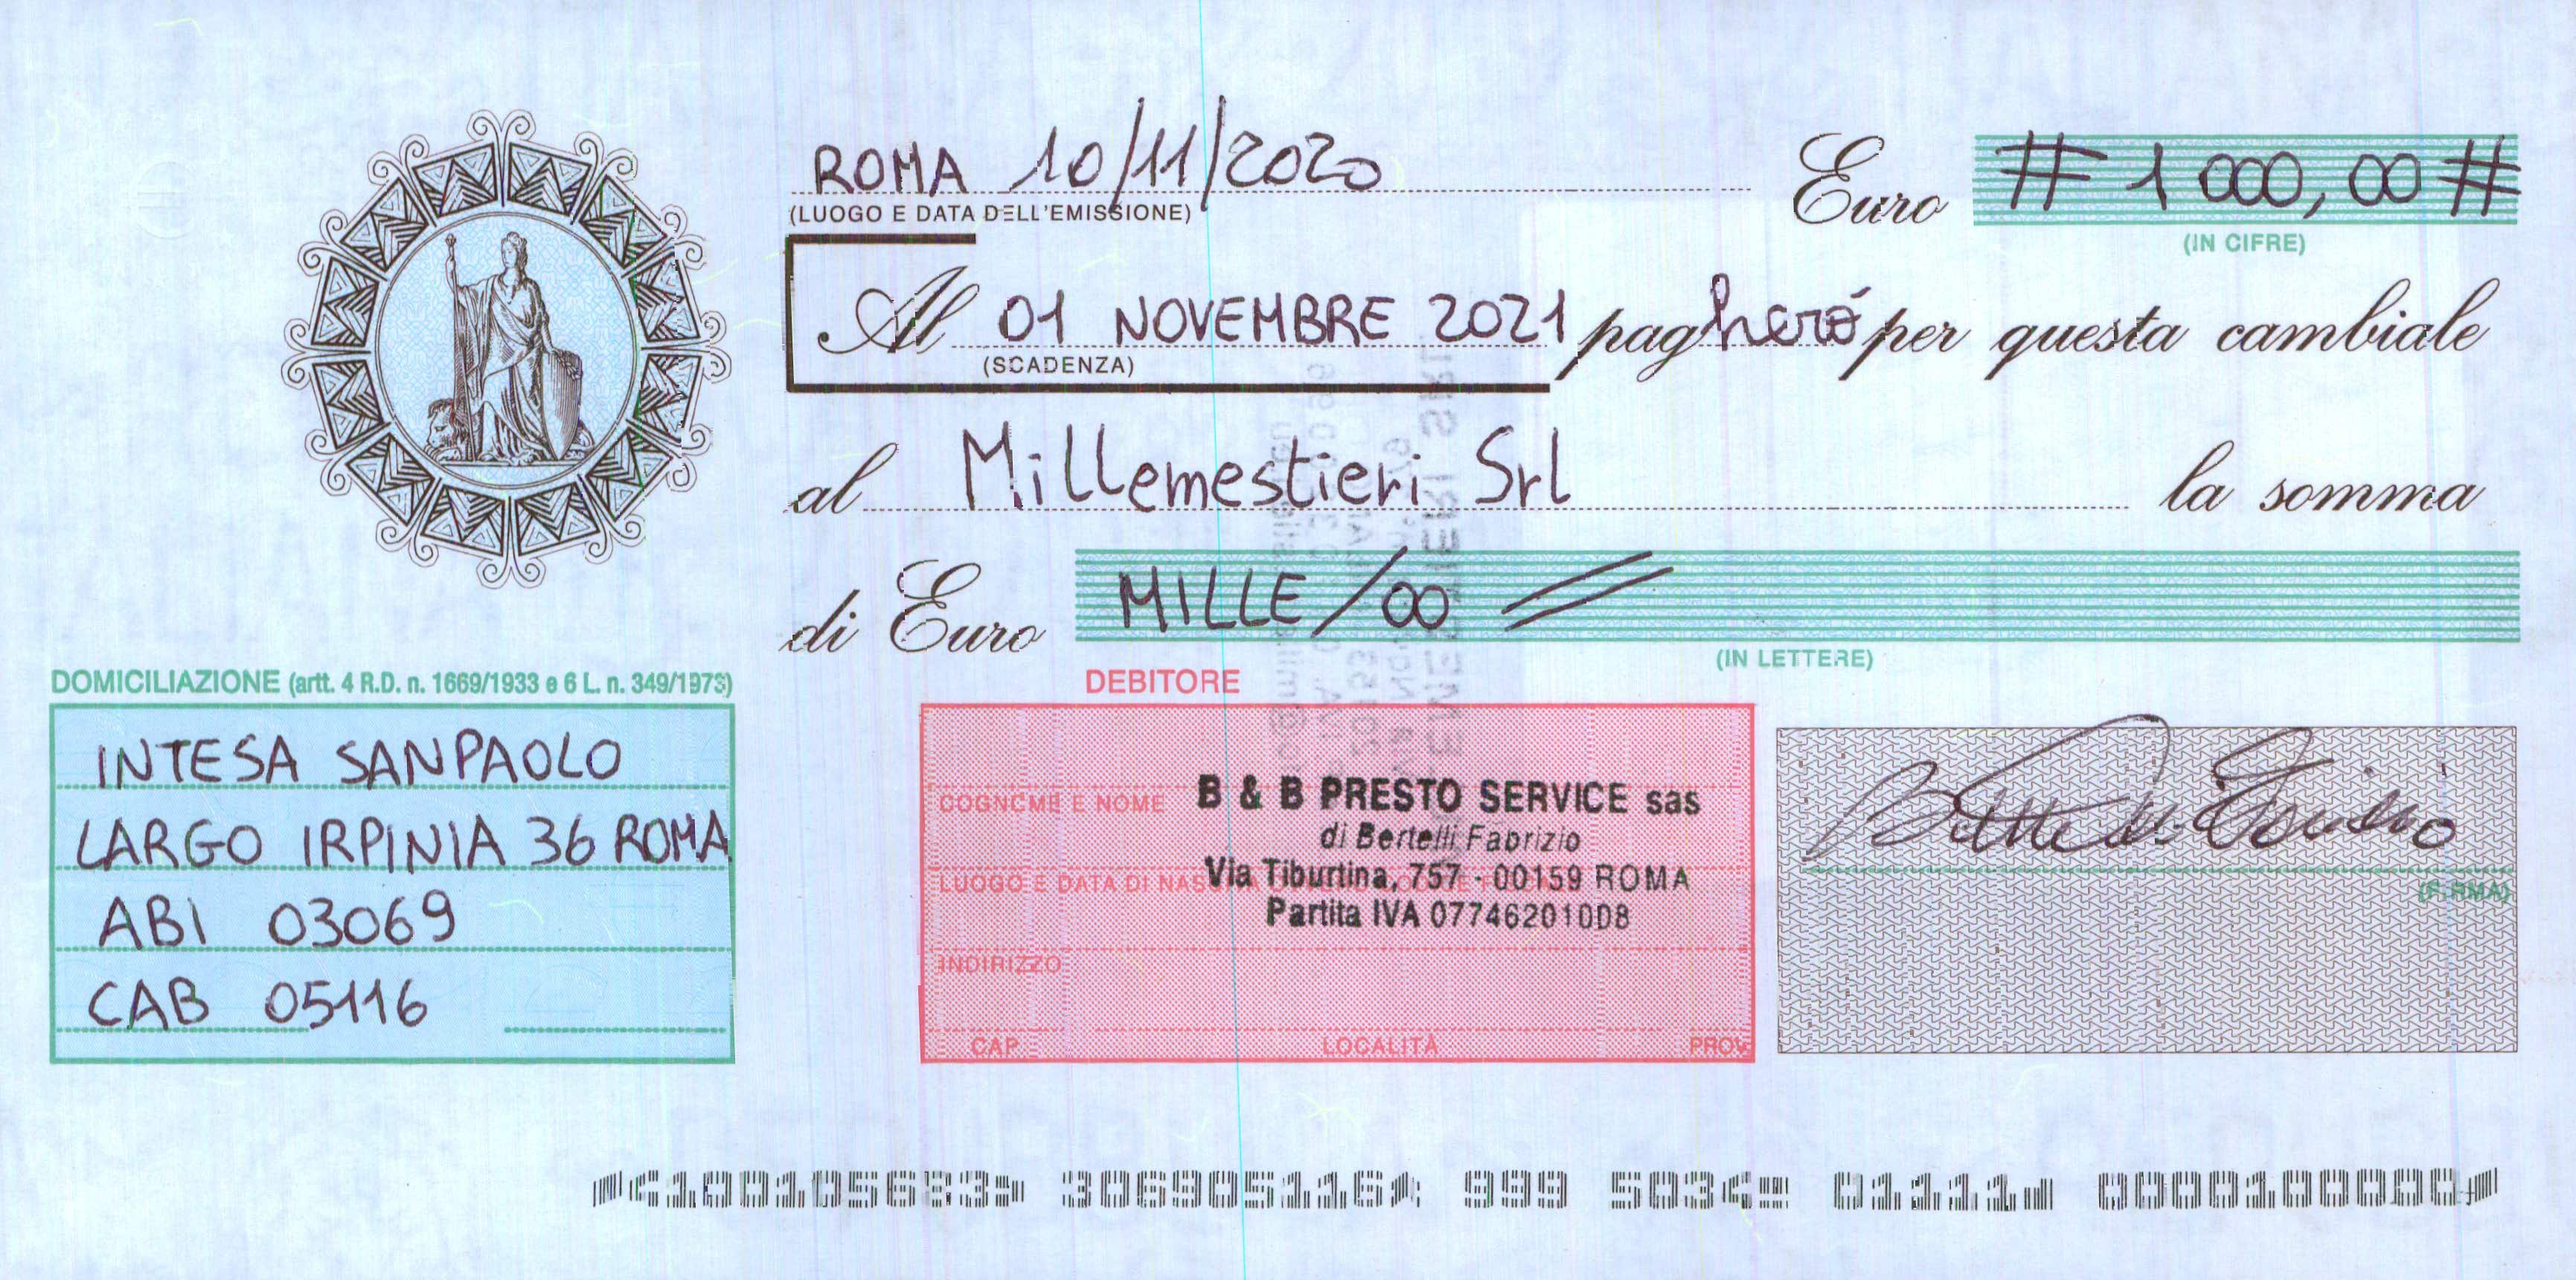 ROMA 10/11/2020
(LUOGO E DATA DELL'EMISSIONE)
Euro # 1 000,00 #
(IN CIFRE)
Al 01 NOVEMBRE 2021 pagherò per questa cambiale
(SCADENZA)
al Millemestieri Srl la somma
di Euro MILLE/00
(IN LETTERE)
DOMICILIAZIONE (artt. 4 R.D. n. 1669/1933 e 6 L. n. 349/1973)
INTESA SANPAOLO
LARGO IRPINIA 36 ROMA
ABI 03069
CAB 05116
DEBITORE
COGNOME E NOME
B & B PRESTO SERVICE sas
di Bertelli Fabrizio
LUOGO E DATA DI NAS
Via Tiburtina, 757 - 00159 ROMA
Partita IVA 07746201008
INDIRIZZO
CAP LOCALITÀ PROV
(FIRMA)
306905116 999 5034 01111 00001000000